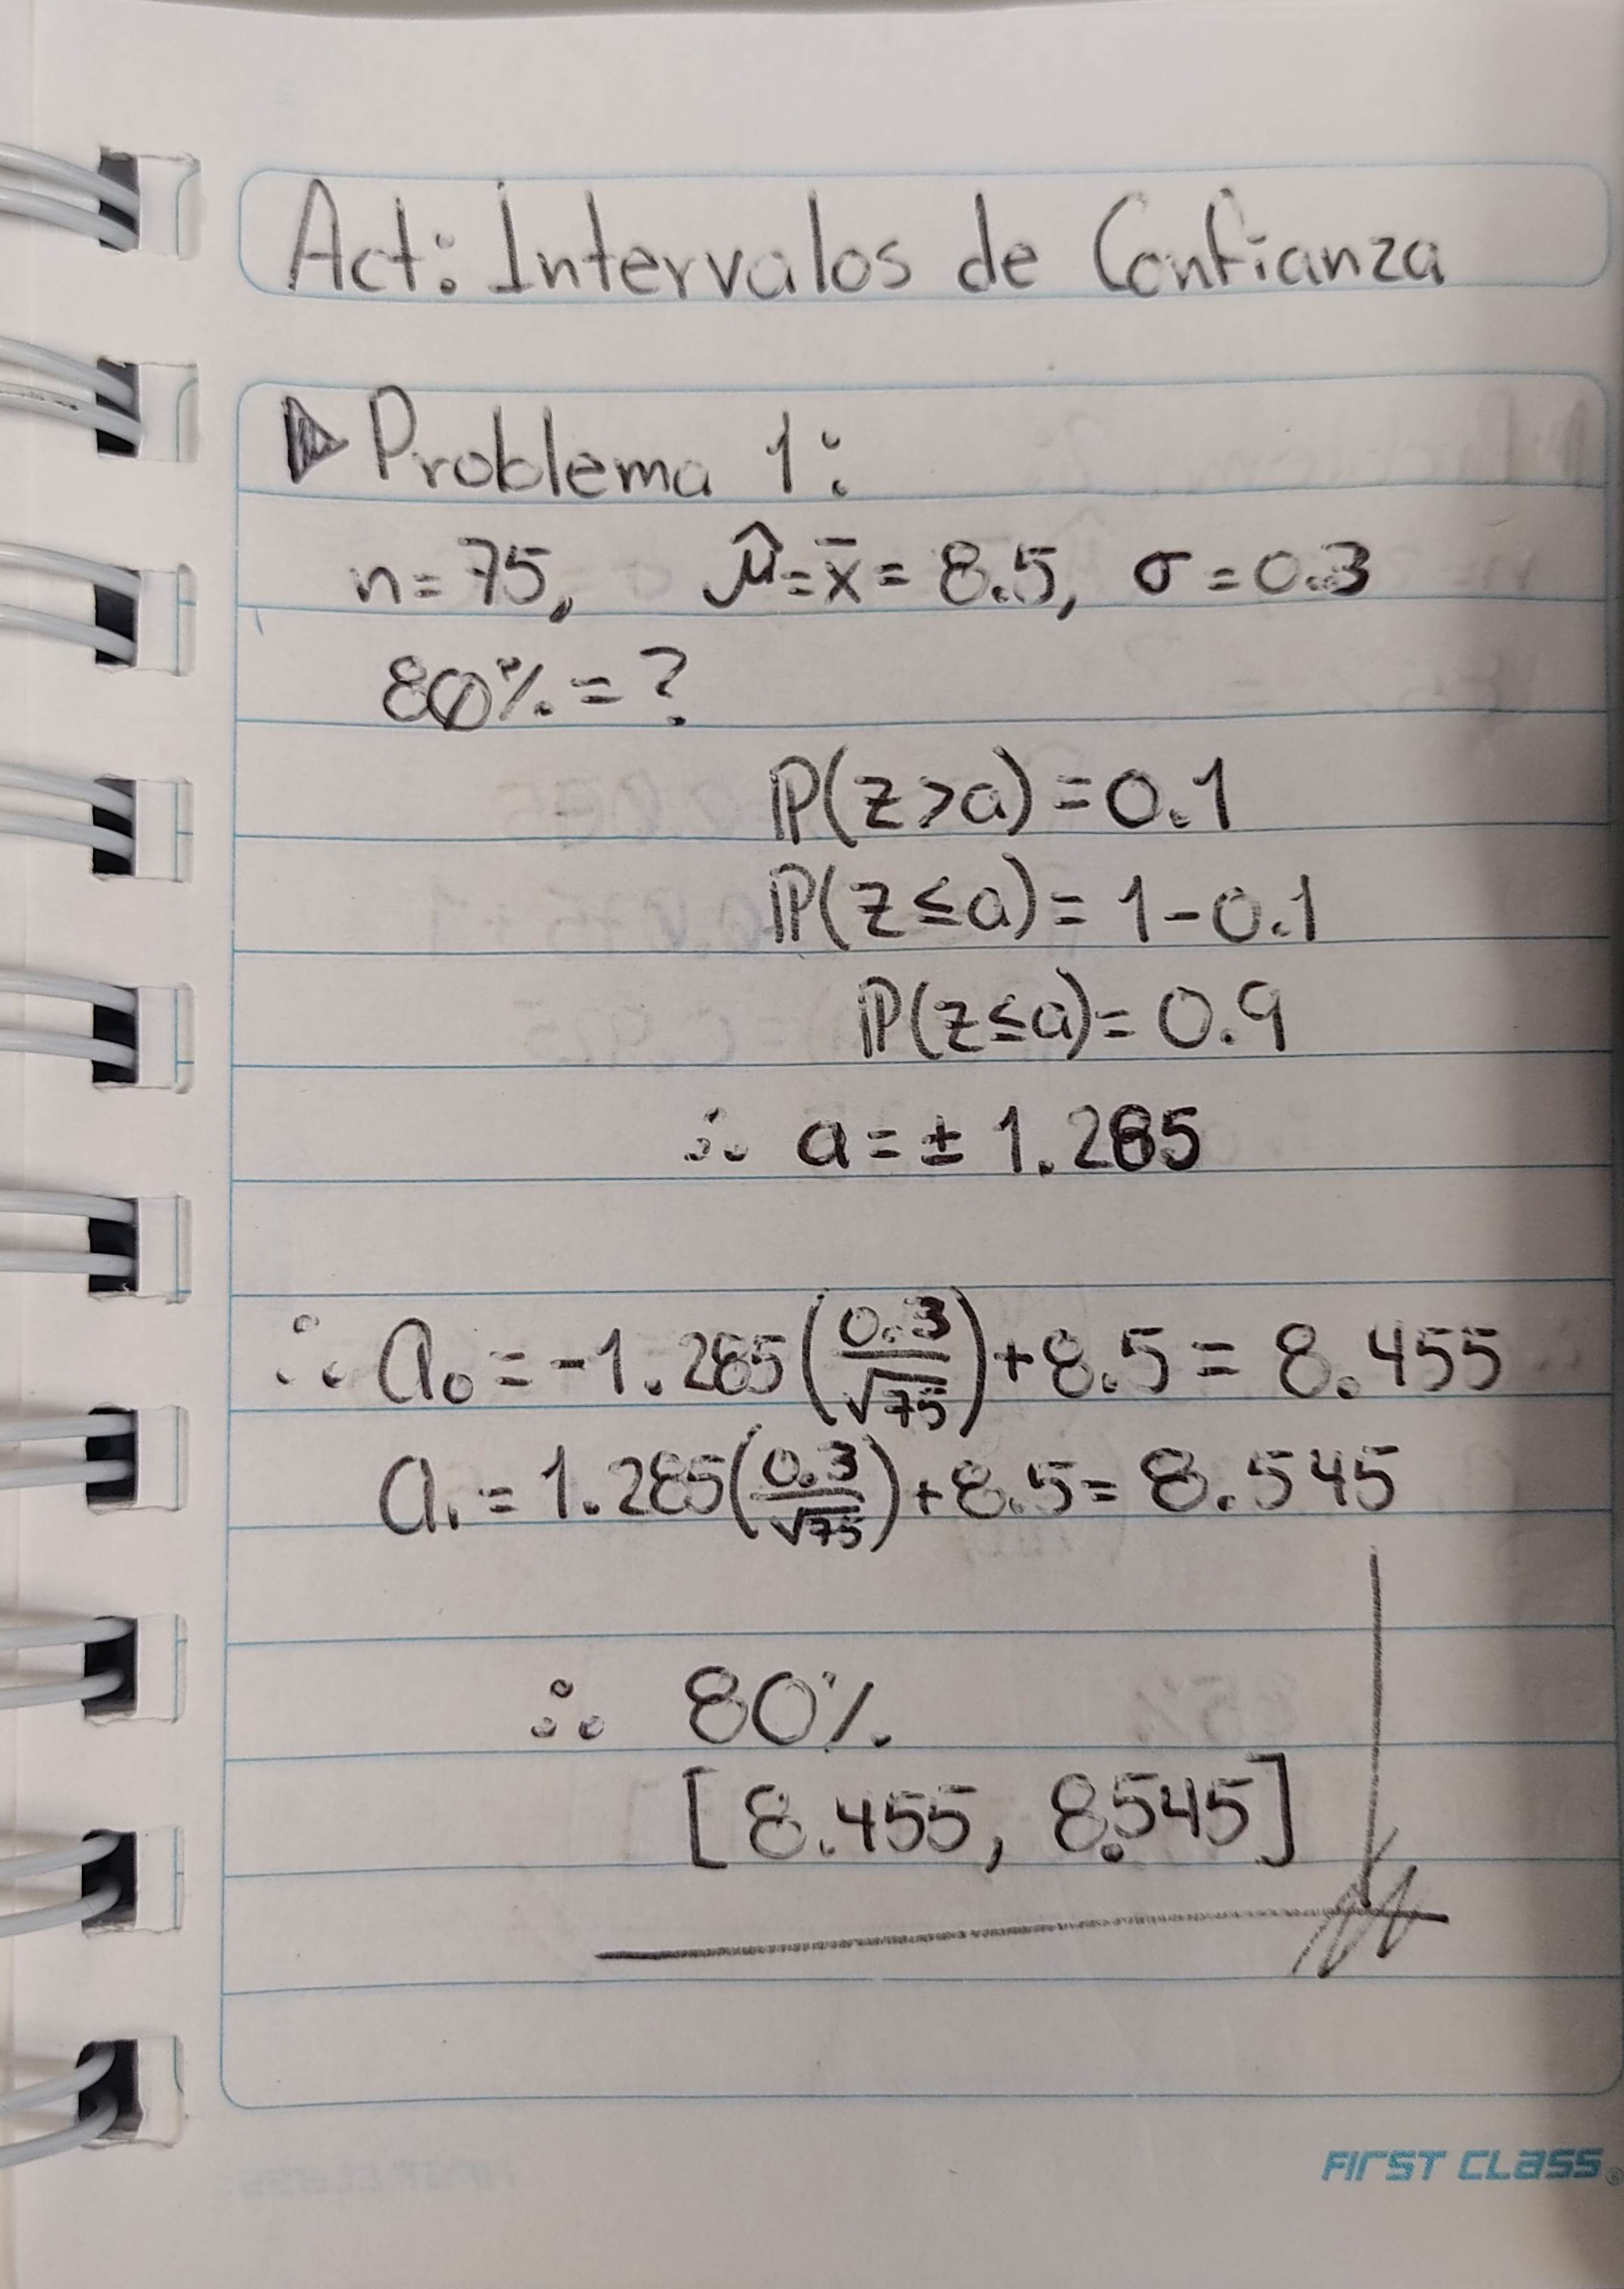 Act: Intervalos de Confianza
Problema 1:
n = 75, μ̂ = x̄ = 8.5, σ = 0.3
80% = ?
ℙ(z > a) = 0.1
ℙ(z ≤ a) = 1 - 0.1
ℙ(z ≤ a) = 0.9
∴ a = ± 1.285
∴ a₀ = -1.285(0.3/√75) + 8.5 = 8.455
a₁ = 1.285(0.3/√75) + 8.5 = 8.545
∴ 80%
[8.455, 8.545]
FIRST CLASS